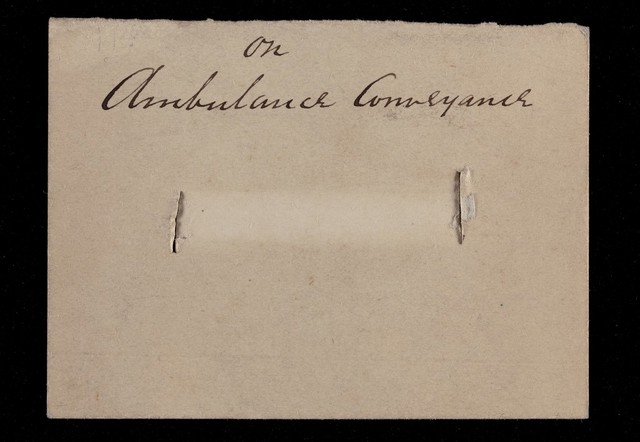 on
Ambulance Conveyance